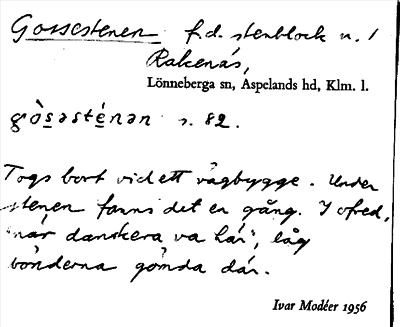 Gossestenen f.d. stenblock n. 1
Rakenäs,
Lönneberga sn, Aspelands hd, Klm. l.
gòsəsténən s. 82.
Togs bort vid ett vägbygge. Under
stenen fanns det en gång. I ofred,
"när danskera va här", låg
bönderna gömda där.
Ivar Modéer 1956